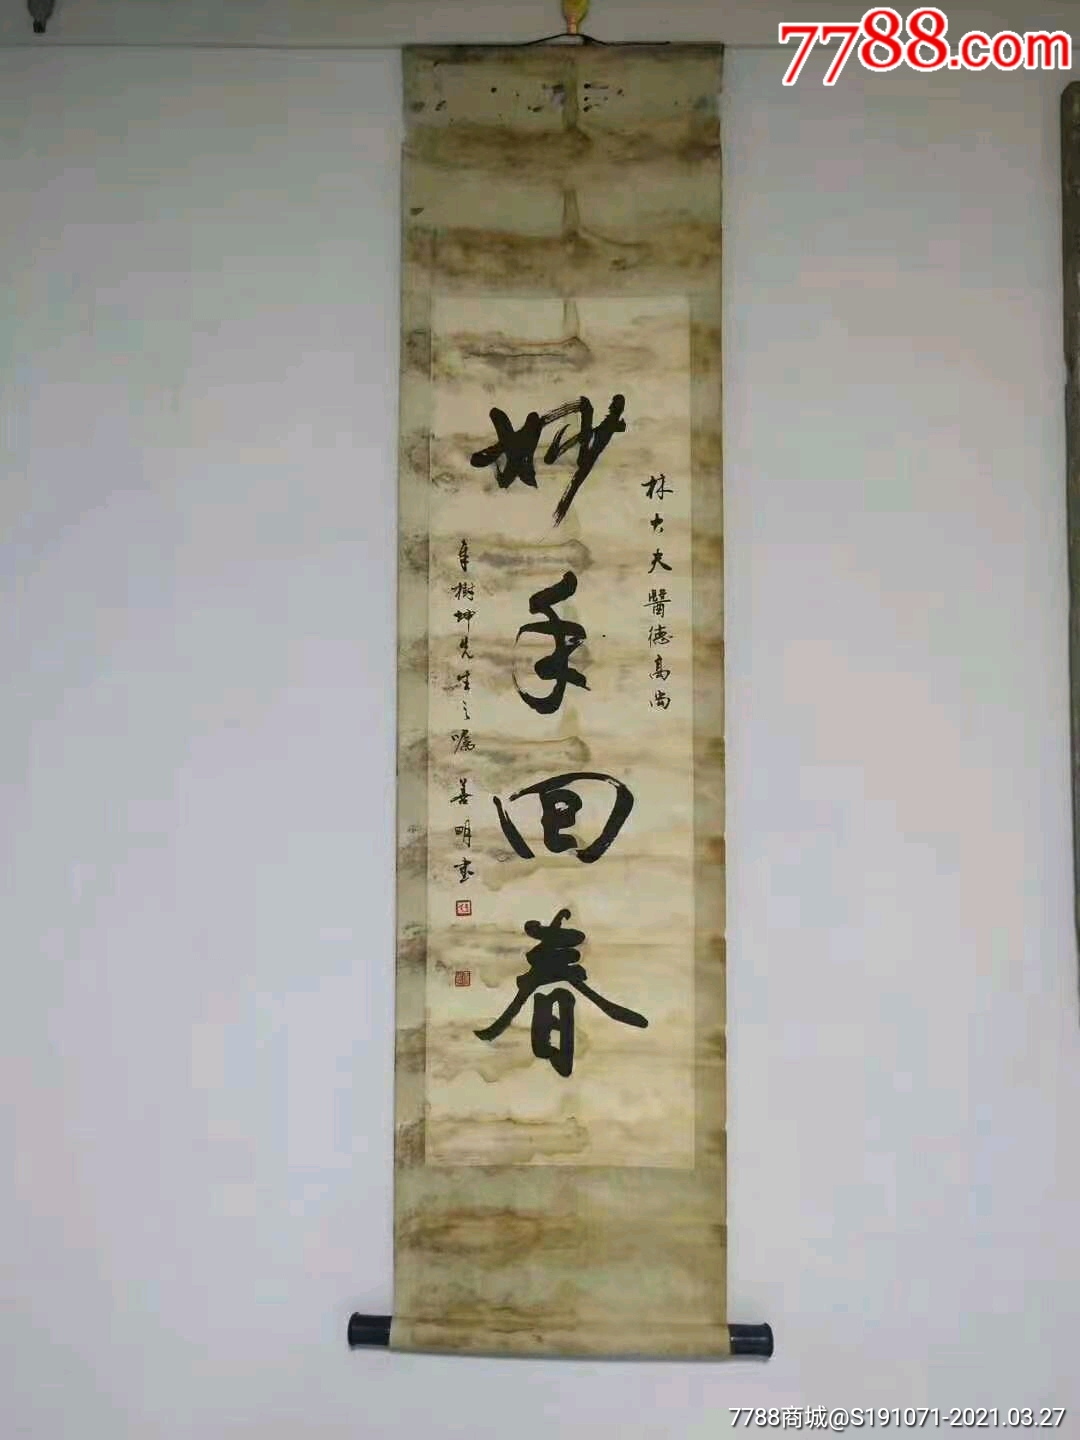 7788.com
林大夫醫德高尚
妙手回春
樹坤先生之嘱 善明書
7788商城@S191071-2021.03.27